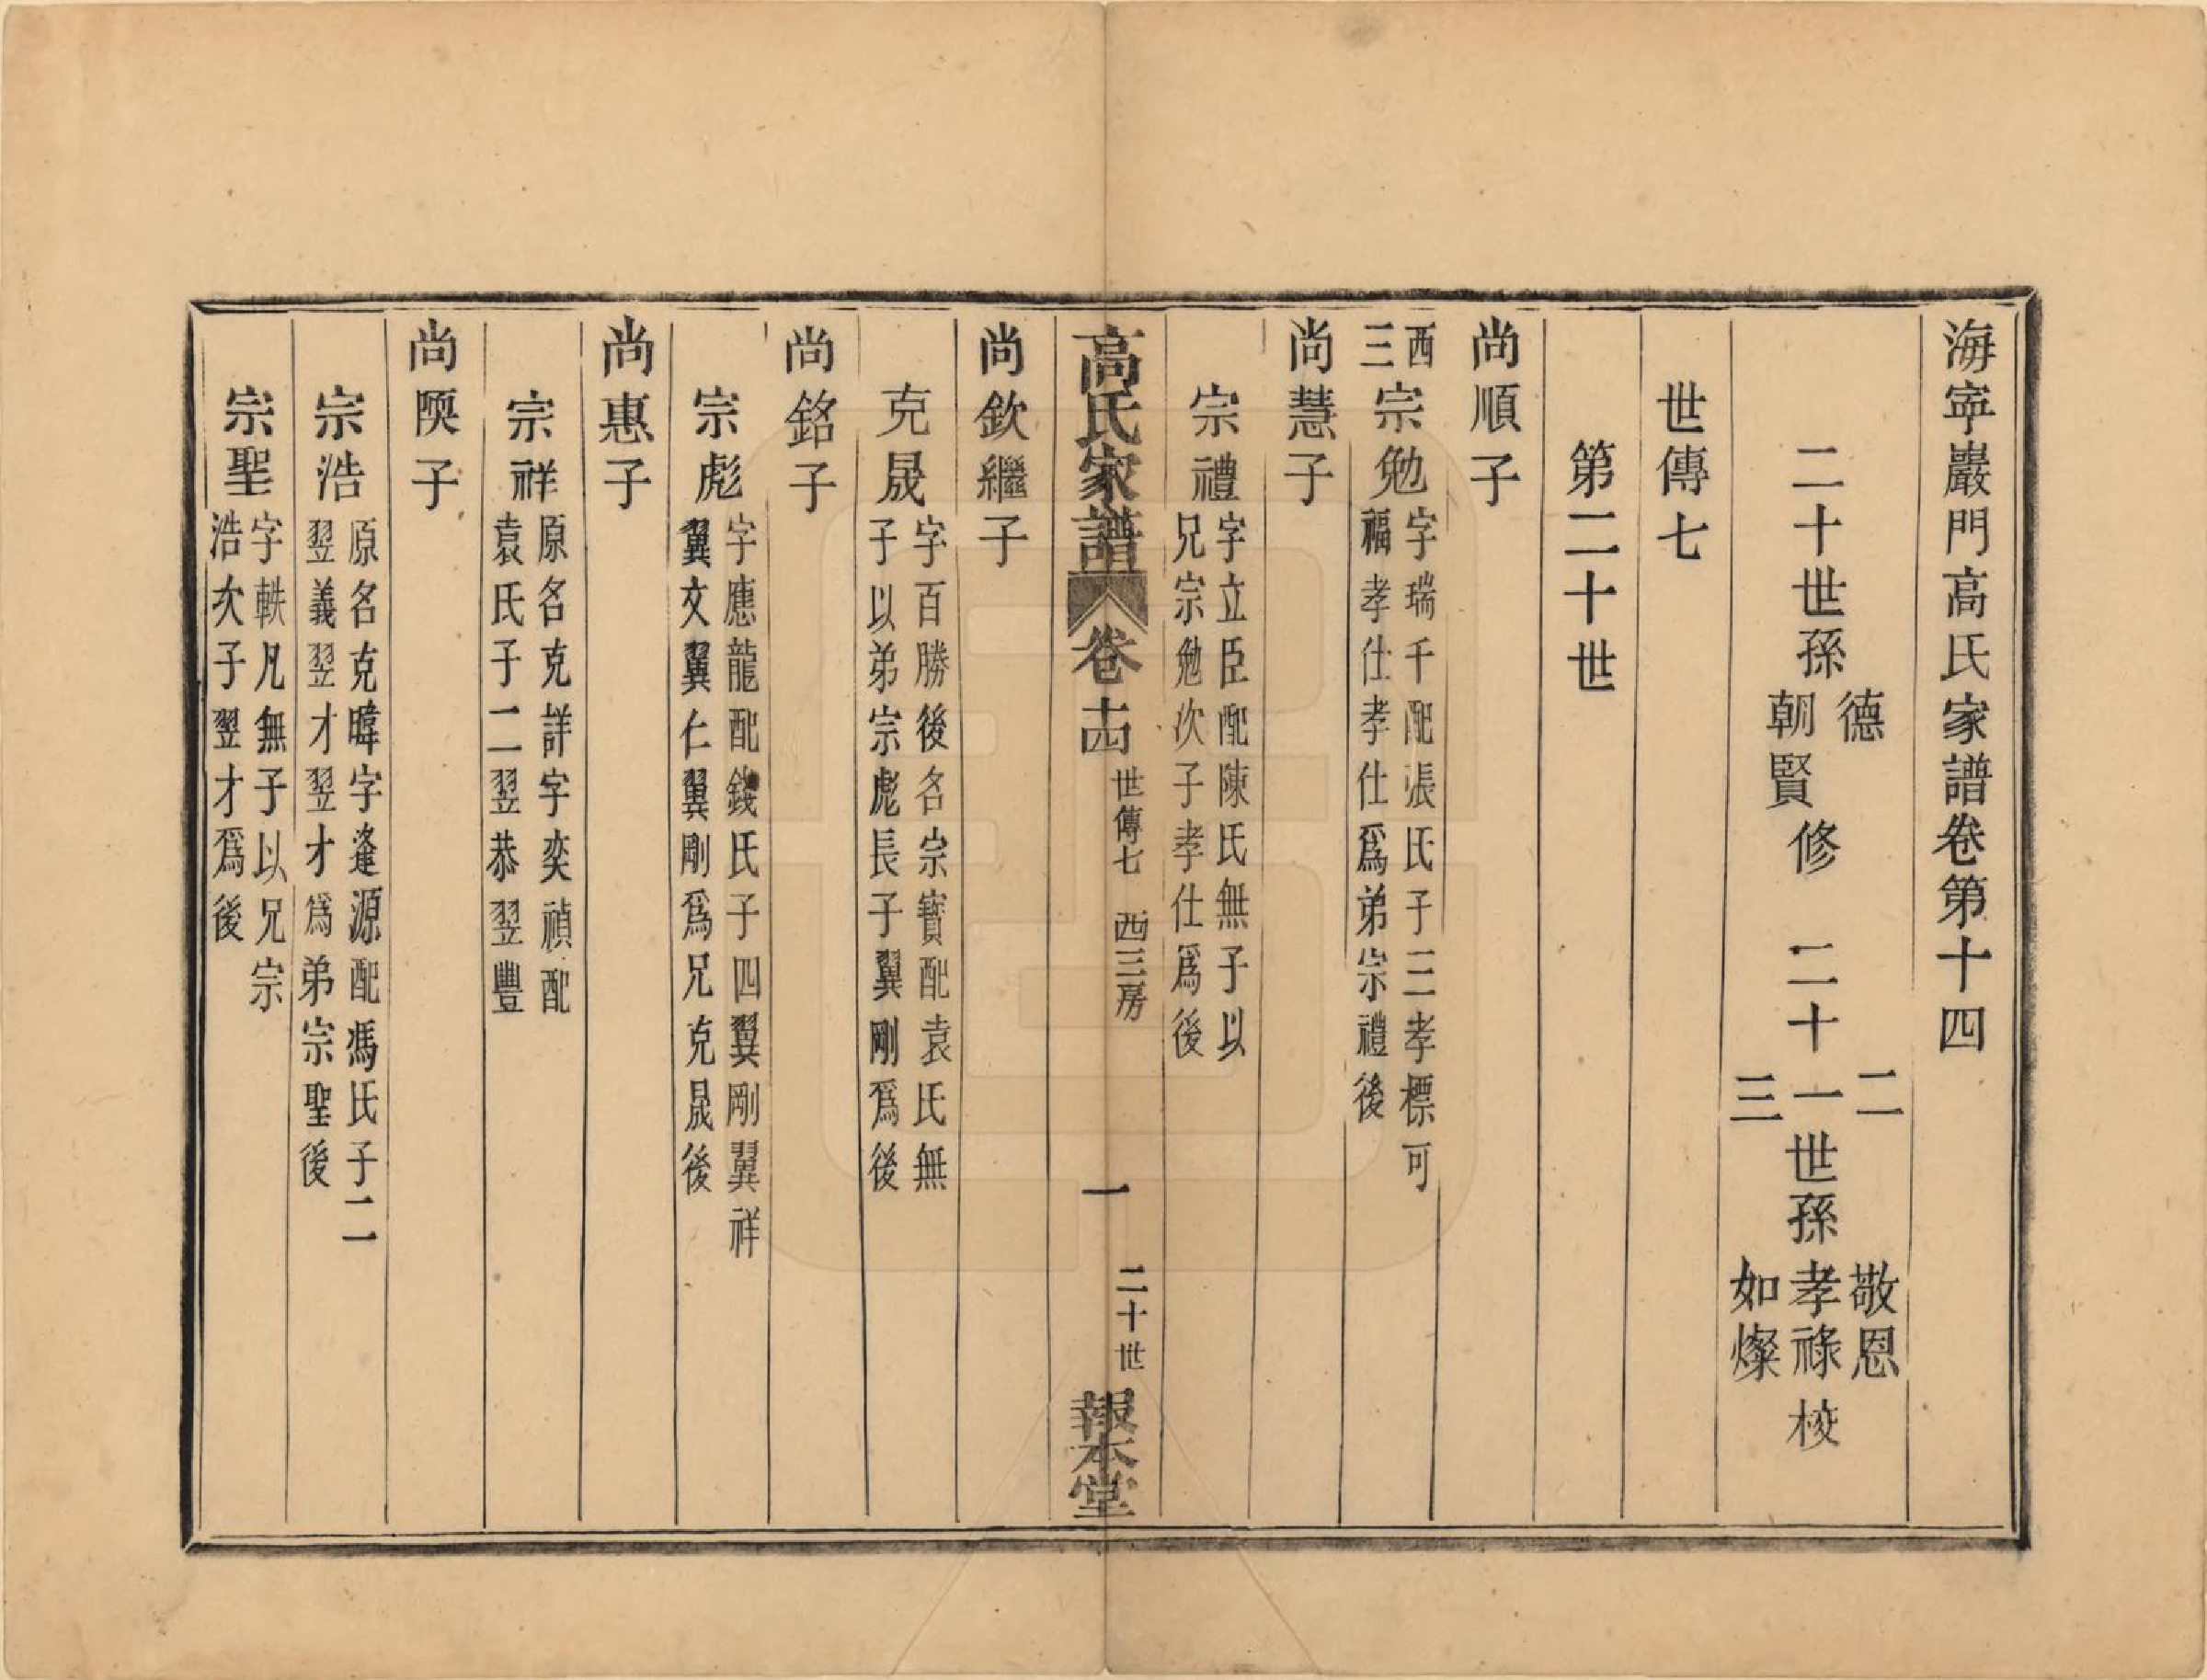 海寧巖門高氏家譜卷第十四
二十世孫德朝賢修　二十一二三世孫敬恩孝祿如燦校
世傳七
第二十世
尚順子
西三宗勉字瑞千配張氏子三孝標可
福孝仕孝仕爲弟宗禮後
尚慧子
宗禮字立臣配陳氏無子以
兄宗勉次子孝仕爲後
高氏家譜　卷十四　世傳七　西三房　一　二十世　報本堂
尚欽繼子
克晟字百勝後名宗寳配袁氏無
子以弟宗彪長子翼剛爲後
尚銘子
宗彪字應龍配錢氏子四翼剛翼祥
翼文翼仁翼剛爲兄克晟後
尚惠子
宗祥原名克詳字奕禎配
袁氏子二翌恭翌豐
尚陾子
宗浩原名克暐字逢源配馮氏子二
翌義翌才翌才爲弟宗聖後
宗聖字軼凡無子以兄宗
浩次子翌才爲後